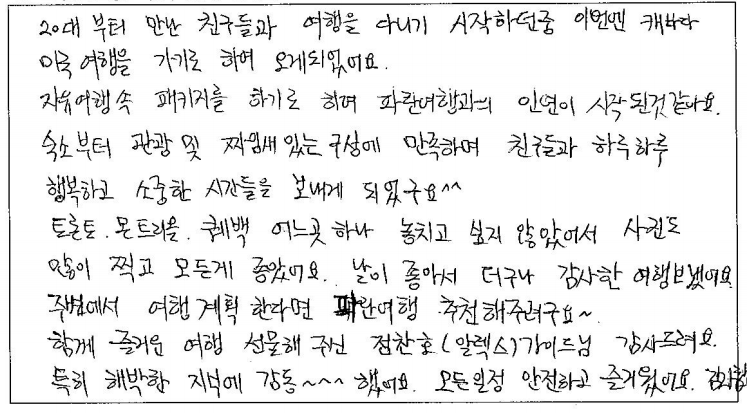 20대 부터 만난 친구들과 여행을 다니기 시작하던중 이번엔 캐나다
미국 여행을 가기로 하여 오게되었어요.
자유여행속 패키지를 하기로 하여 파란여행과의 인연이 시작 된것 같아요.
숙소부터 관광 및 짜임새 있는 구성에 만족하며 친구들과 하루하루
행복하고 소중한 시간들을 보내게 되었구요^^
토론토. 몬트리올. 퀘백 어느곳 하나 놓치고 싶지 않았어서 사진도
많이 찍고 모든게 좋았어요. 날이 좋아서 더구나 감사한 여행보냈어요
주변에서 여행계획 한다면 파란여행 추천해주려구요~
함께 즐거운 여행 선물해 주신 정찬호(알렉스)가이드님 감사드려요.
특히 해박한 지식에 감동~~~ 했어요. 모든일정 안전하고 즐거웠어요.